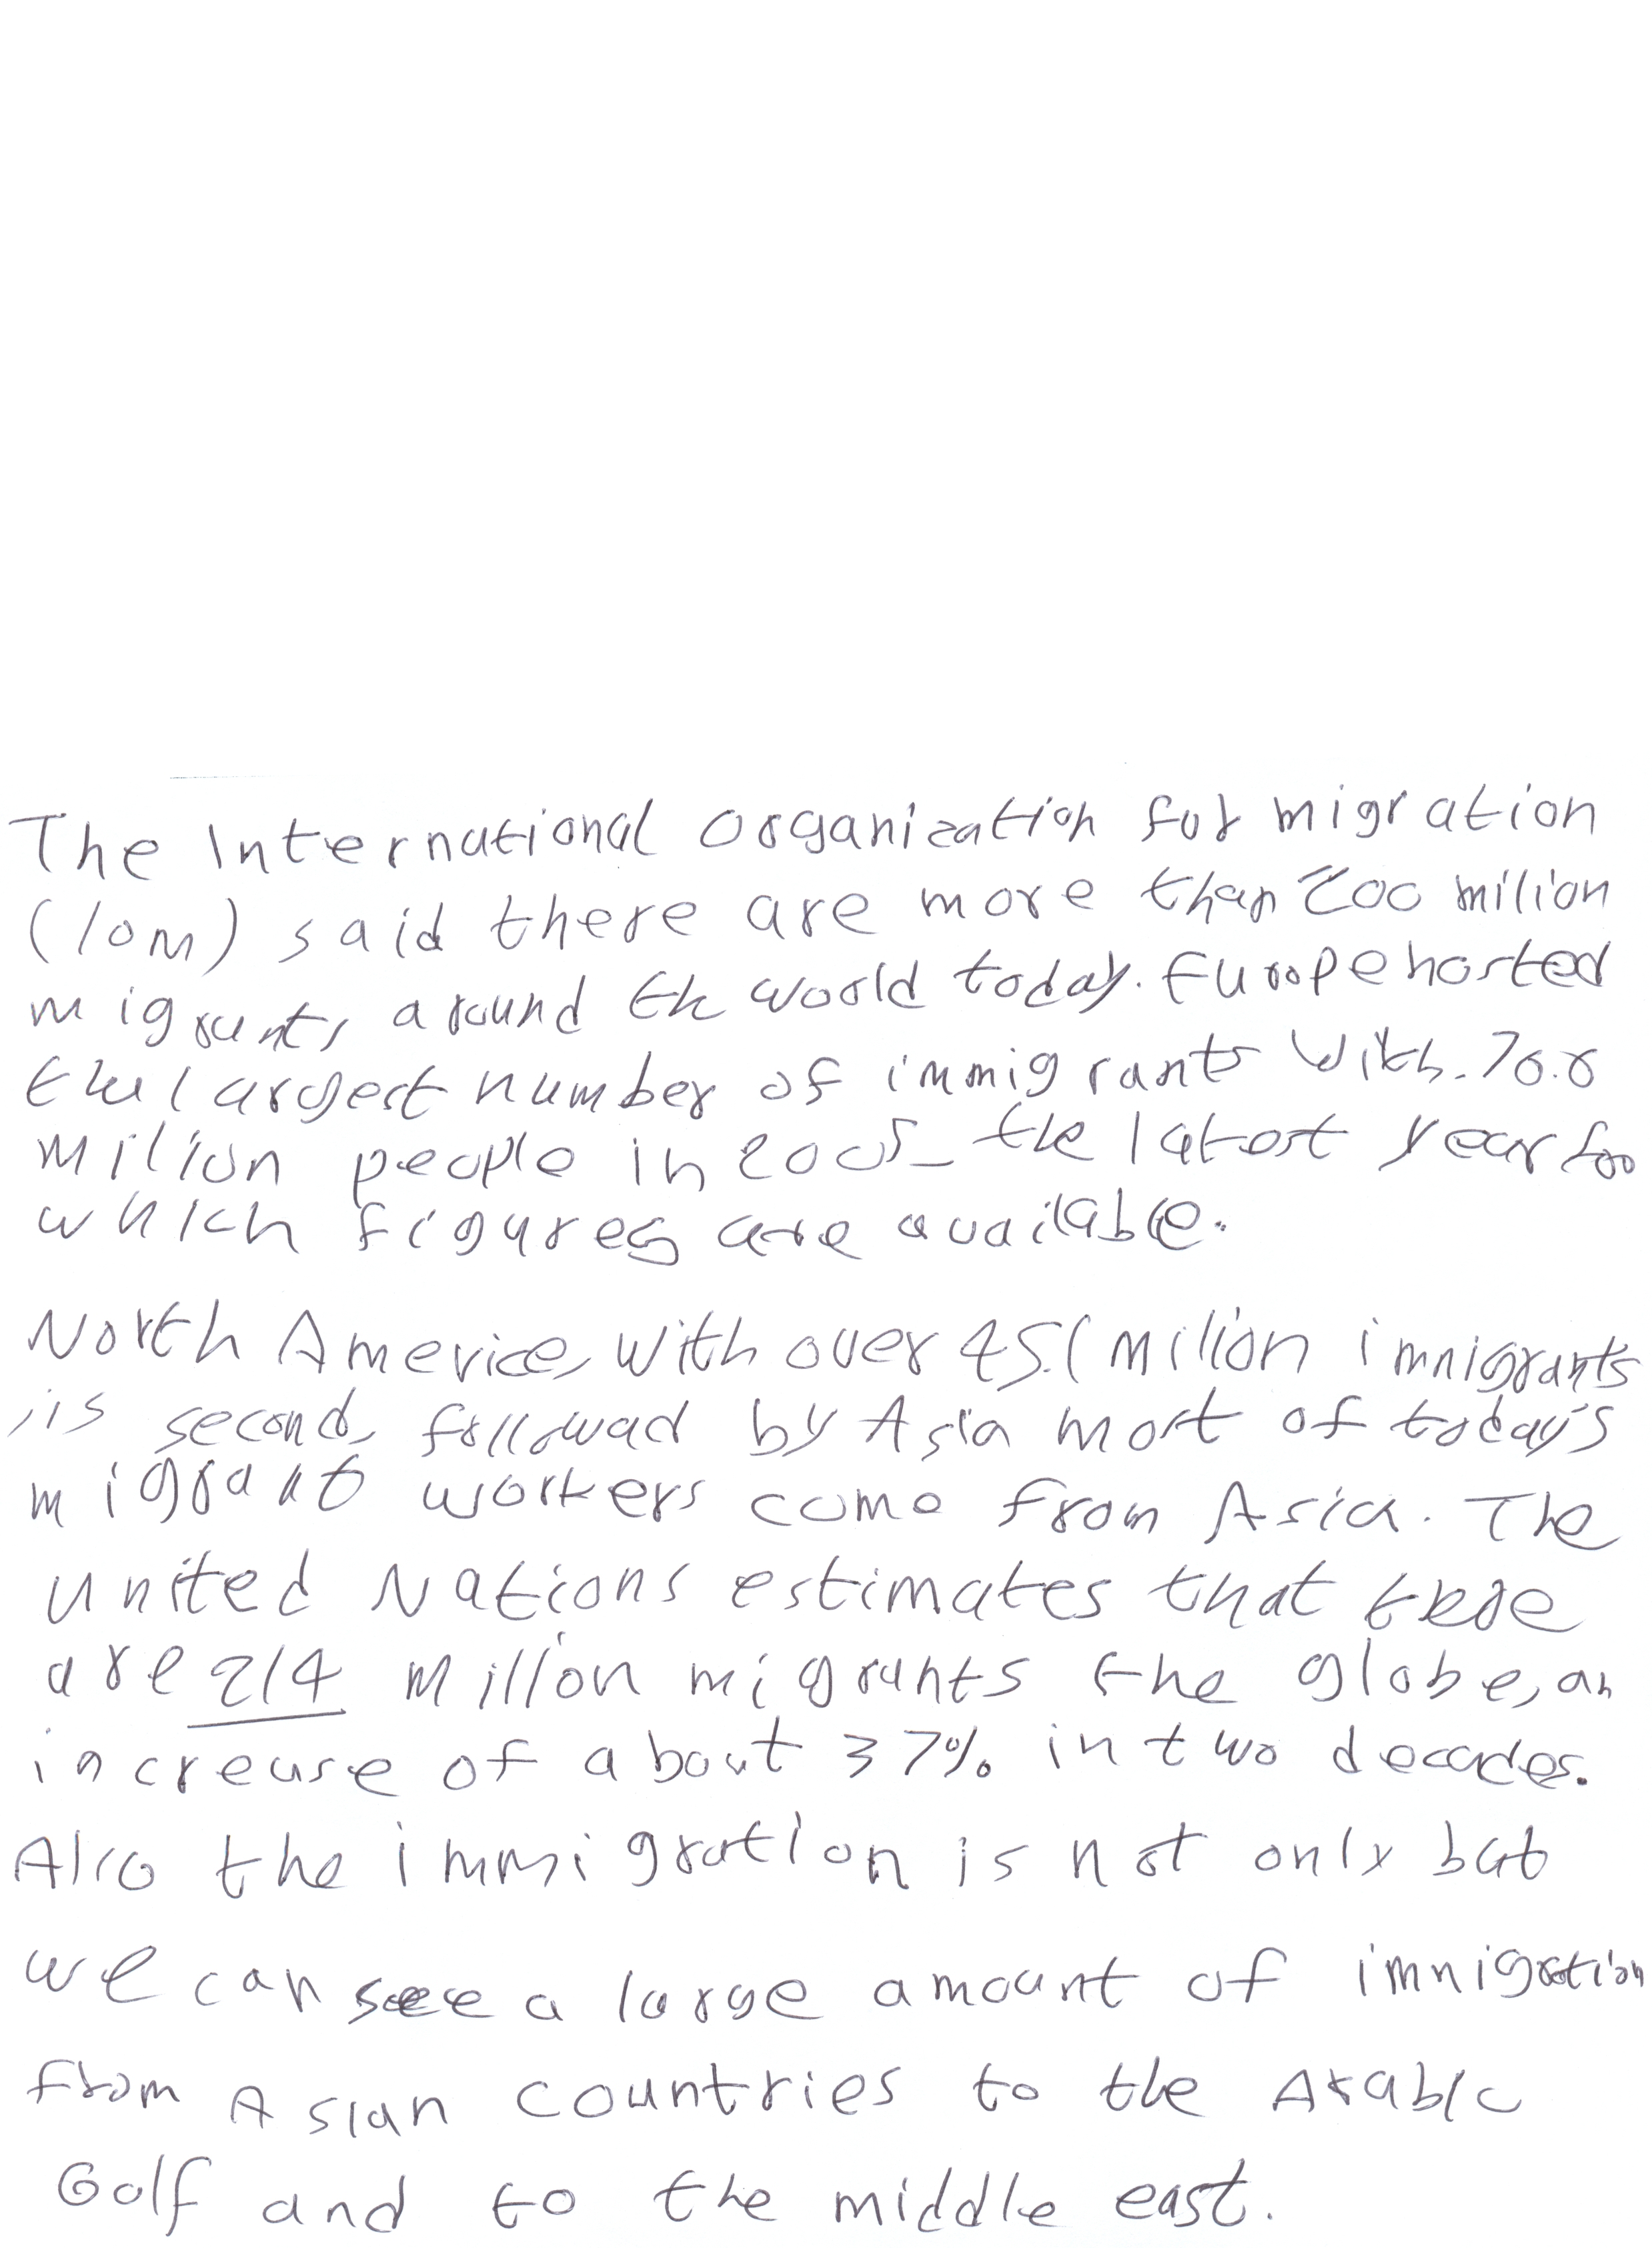 The International Organization for migration
(IOM) said there are more than 200 milion
migrants around the world today. Europe hosted
the largest number of immigrants with. 70.6
milion people in 2005_ the latest year for
which figures are available.
North America, with over 45.1 milion imnigrants
is second, followad by Asia most of today's
migrant workers come from Asia. The
United Nations estimates that there
are 214 millon migrants the globe, an
increase of about 37% in two decades.
Also the immigration is not only but
we can see a large amount of imnigration
from Asian countries to the Arabic
Golf and to the middle east.